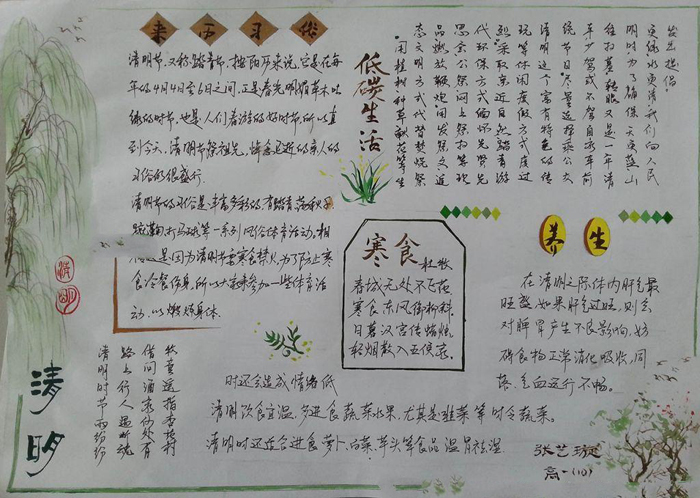 来历习俗
清明节，又称踏青节，按阳历来说，它是在每
年的4月4日至6日之间，正是春光明媚草木吐
绿的时节，也是人们春游的好时节，所以直
到今天，清明节祭祖先，悼念已逝的亲人的
习俗仍很盛行。
清明节的习俗是丰富多彩的，有踏青、荡秋千
蹴鞠、打马球等一系列风俗体育活动。相
传这是因为清明节要寒食禁火，为了防止寒
食冷餐伤身，所以大家来参加一些体育活
动，以锻炼身体。
低碳生活
发出提倡：
更绿水更清我们向人民
明时，为了确保天更蓝山
往扫墓，转眼又是一年清
车少驾或不驾自家车前
统节日，尽量选择乘公交
清明这个富有特色的传
玩等休闲度假方式度过
烈，采取亲近自然踏青游
代环保方式缅怀先贤先
思念、公祭、网上祭扫等现
品燃放鞭炮，用发祭文、近
态文明方式代替焚烧祭
用植树、种草、献花等生
寒食
杜牧
春城无处不飞花
寒食东风御柳斜
日暮汉宫传蜡烛
轻烟散入五侯家
养生
在清明之际体内肝气最
旺盛，如果肝气过旺，则会
对脾胃产生不良影响，妨
碍食物正常消化吸收，同
时还会造成情绪低
落、气血运行不畅。
清明饮食宜温，多进食蔬菜水果，尤其是韭菜等时令蔬菜。
清明时还适合进食萝卜、白菜、芋头等食品温胃祛湿
清明时节雨纷纷
路上行人欲断魂
借问酒家何处有
牧童遥指杏花村
清明
清明
张艺璇
高一(10)